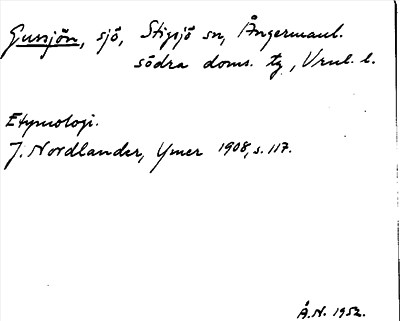 Gussjön, sjö, Stigsjö sn, Ångermanl.
södra doms. tg, Vrnl. l.
Etymologi.
J. Nordlander, Ymer 1908, s. 117.
Å.N. 1952.